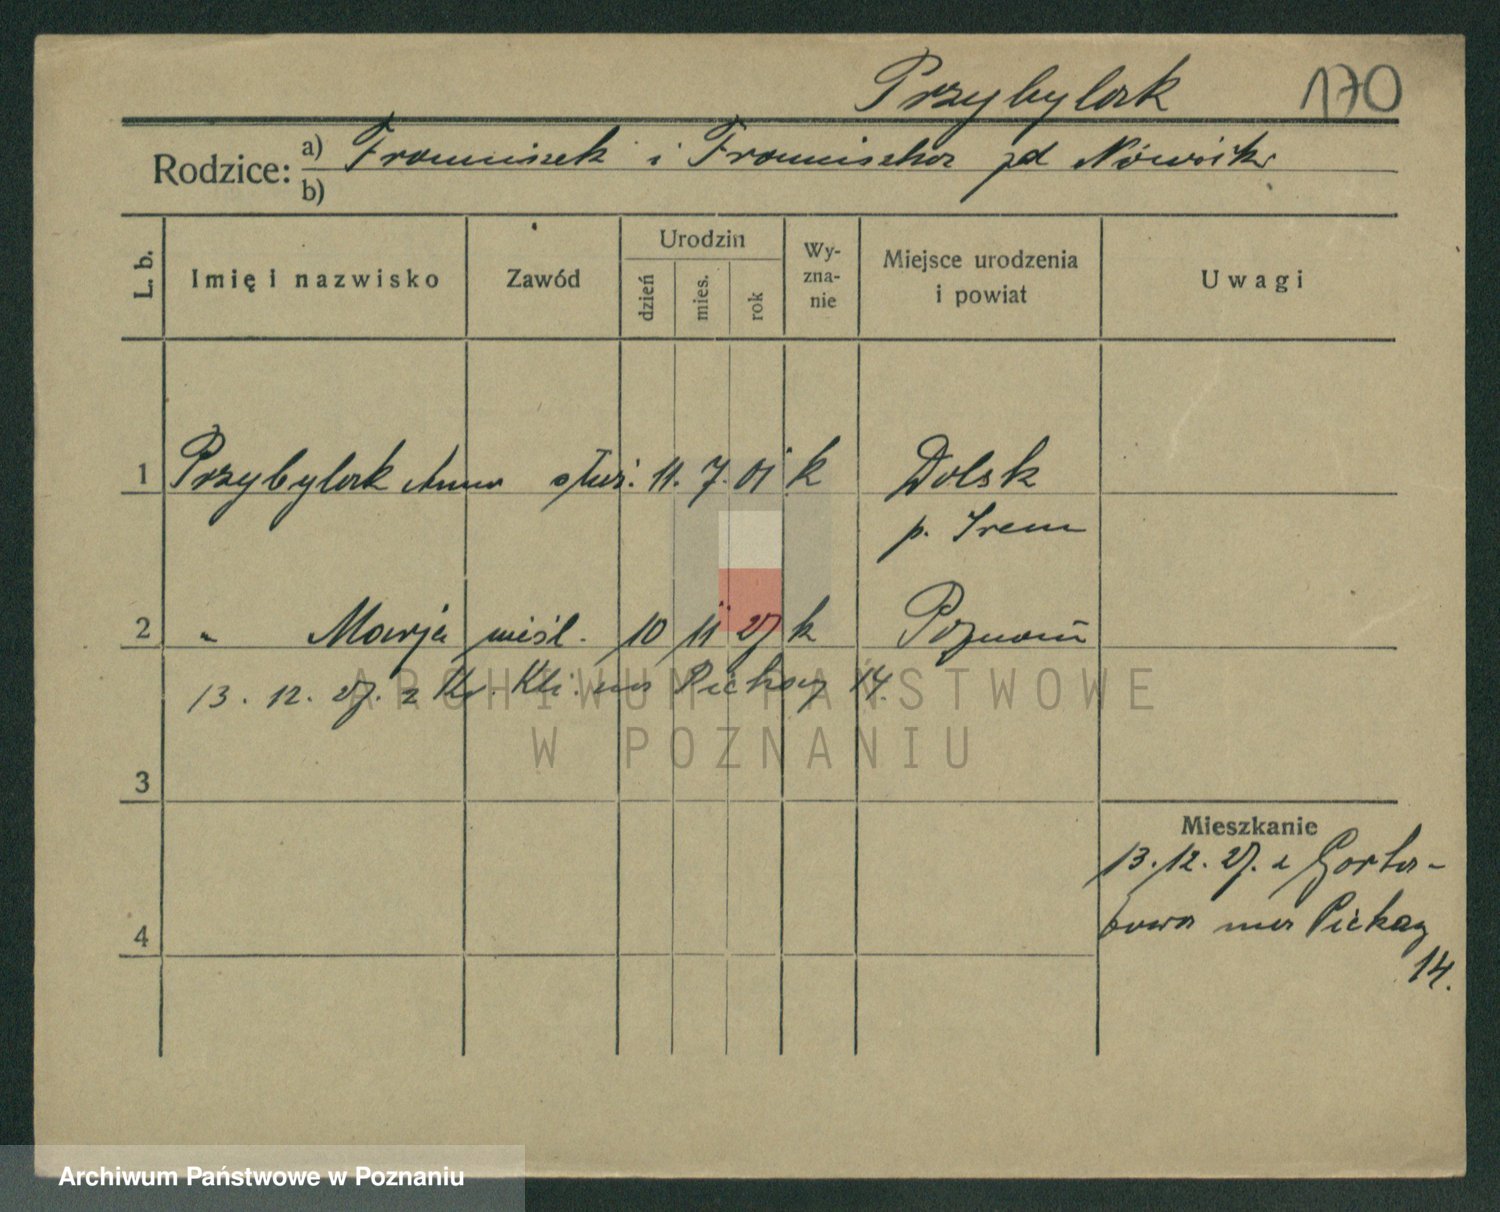 Przybylak 170
Rodzice: a) Franciszek i Franciszka zd Nowak
b)
L. b. Imię i nazwisko Zawód Urodzin dzień mies. rok Wyzna-nie Miejsce urodzenia i powiat Uwagi
1 Przybylak Anna służ. 11. 7. 01 k Dolsk
p. Śrem
2 " Marja nieśl. 10 11 27 k Poznań
13. 12. 27. z Kl. na Piekary 14.
ARCHIWUM PAŃSTWOWE
W POZNANIU
3
Mieszkanie
13. 12. 27. z Garba-
rowa na Piekary
4
14.
Archiwum Państwowe w Poznaniu